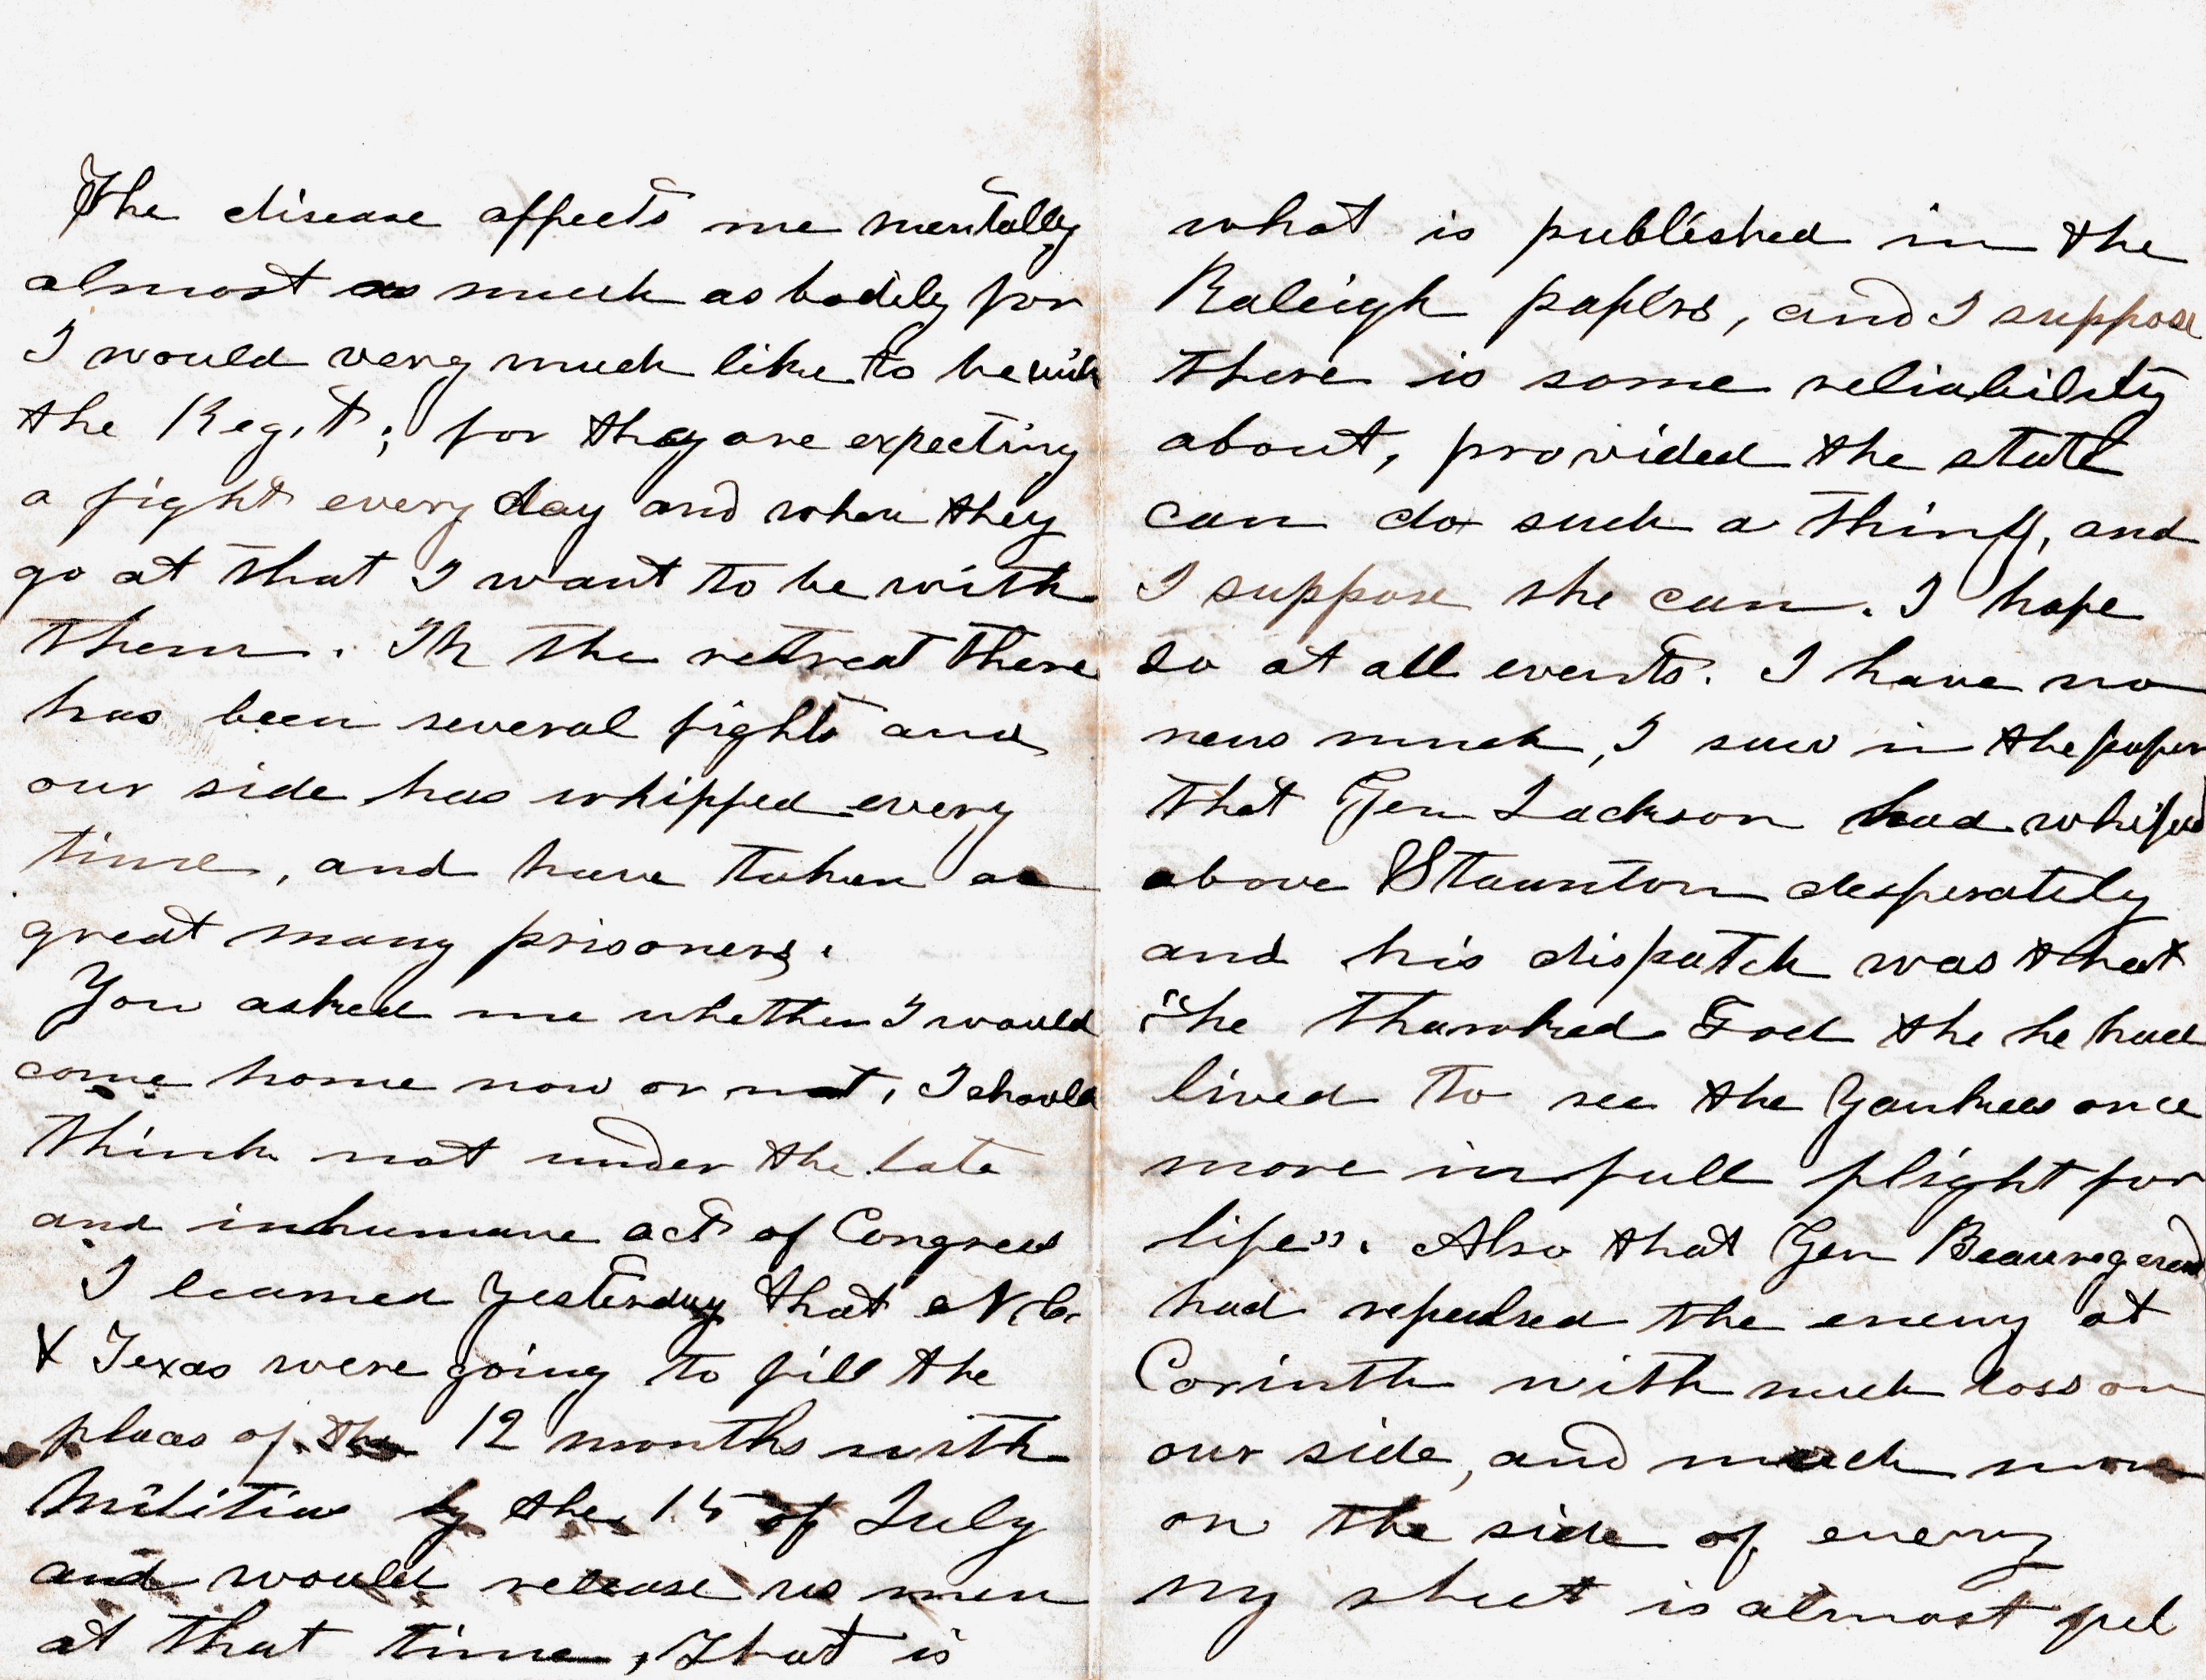 The disease affects me mentally
almost as much as bodily for
I would very much like to be with
the Regt; for they are expecting
a fight every day and when they
go at that I want to be with
them. In the retreat there
has been several fights and
our side has whipped every
time, and have taken a
great many prisoners.
You asked me whether I would
come home now or not, I should
think not under the late
and inhumane act of Congress
I learned yesterday that N.C.
& Texas were going to fill the
places of the 12 months with
Militias by the 15 of July
and would release us men
at that time, that is
what is published in the
Raleigh papers, and I suppose
there is some reliability
about, provided the state
can do such a thing, and
I suppose she can. I hope
so at all events. I have no
news much, I saw in the paper
that Gen Jackson had whiped
above Staunton desperately
and his dispatch was that
"he thanked God the he had
lived to see the Yankees once
more in full flight for
life". Also that Gen Beauregard
had repulsed the enemy at
Corinth with much loss on
our side, and much more
on the side of enemy
my sheet is almost ful